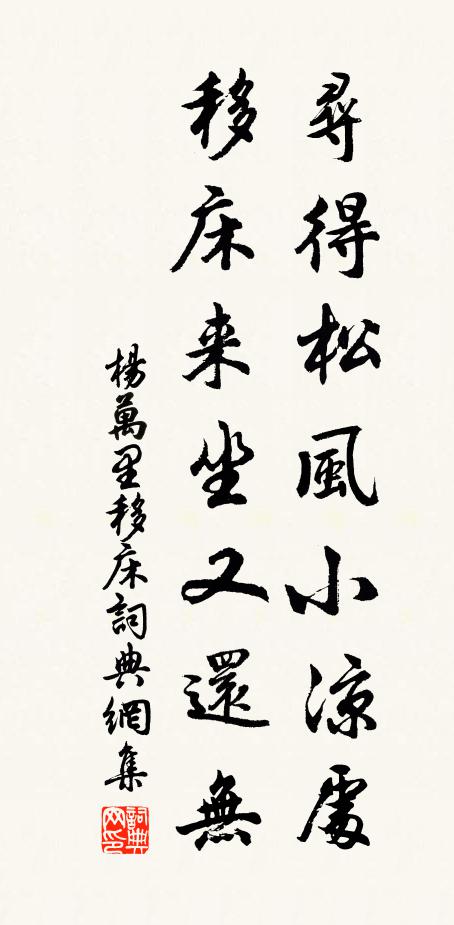 尋得松風小涼處
移床来坐又還無
楊萬里移床詞典網集
詞典网印